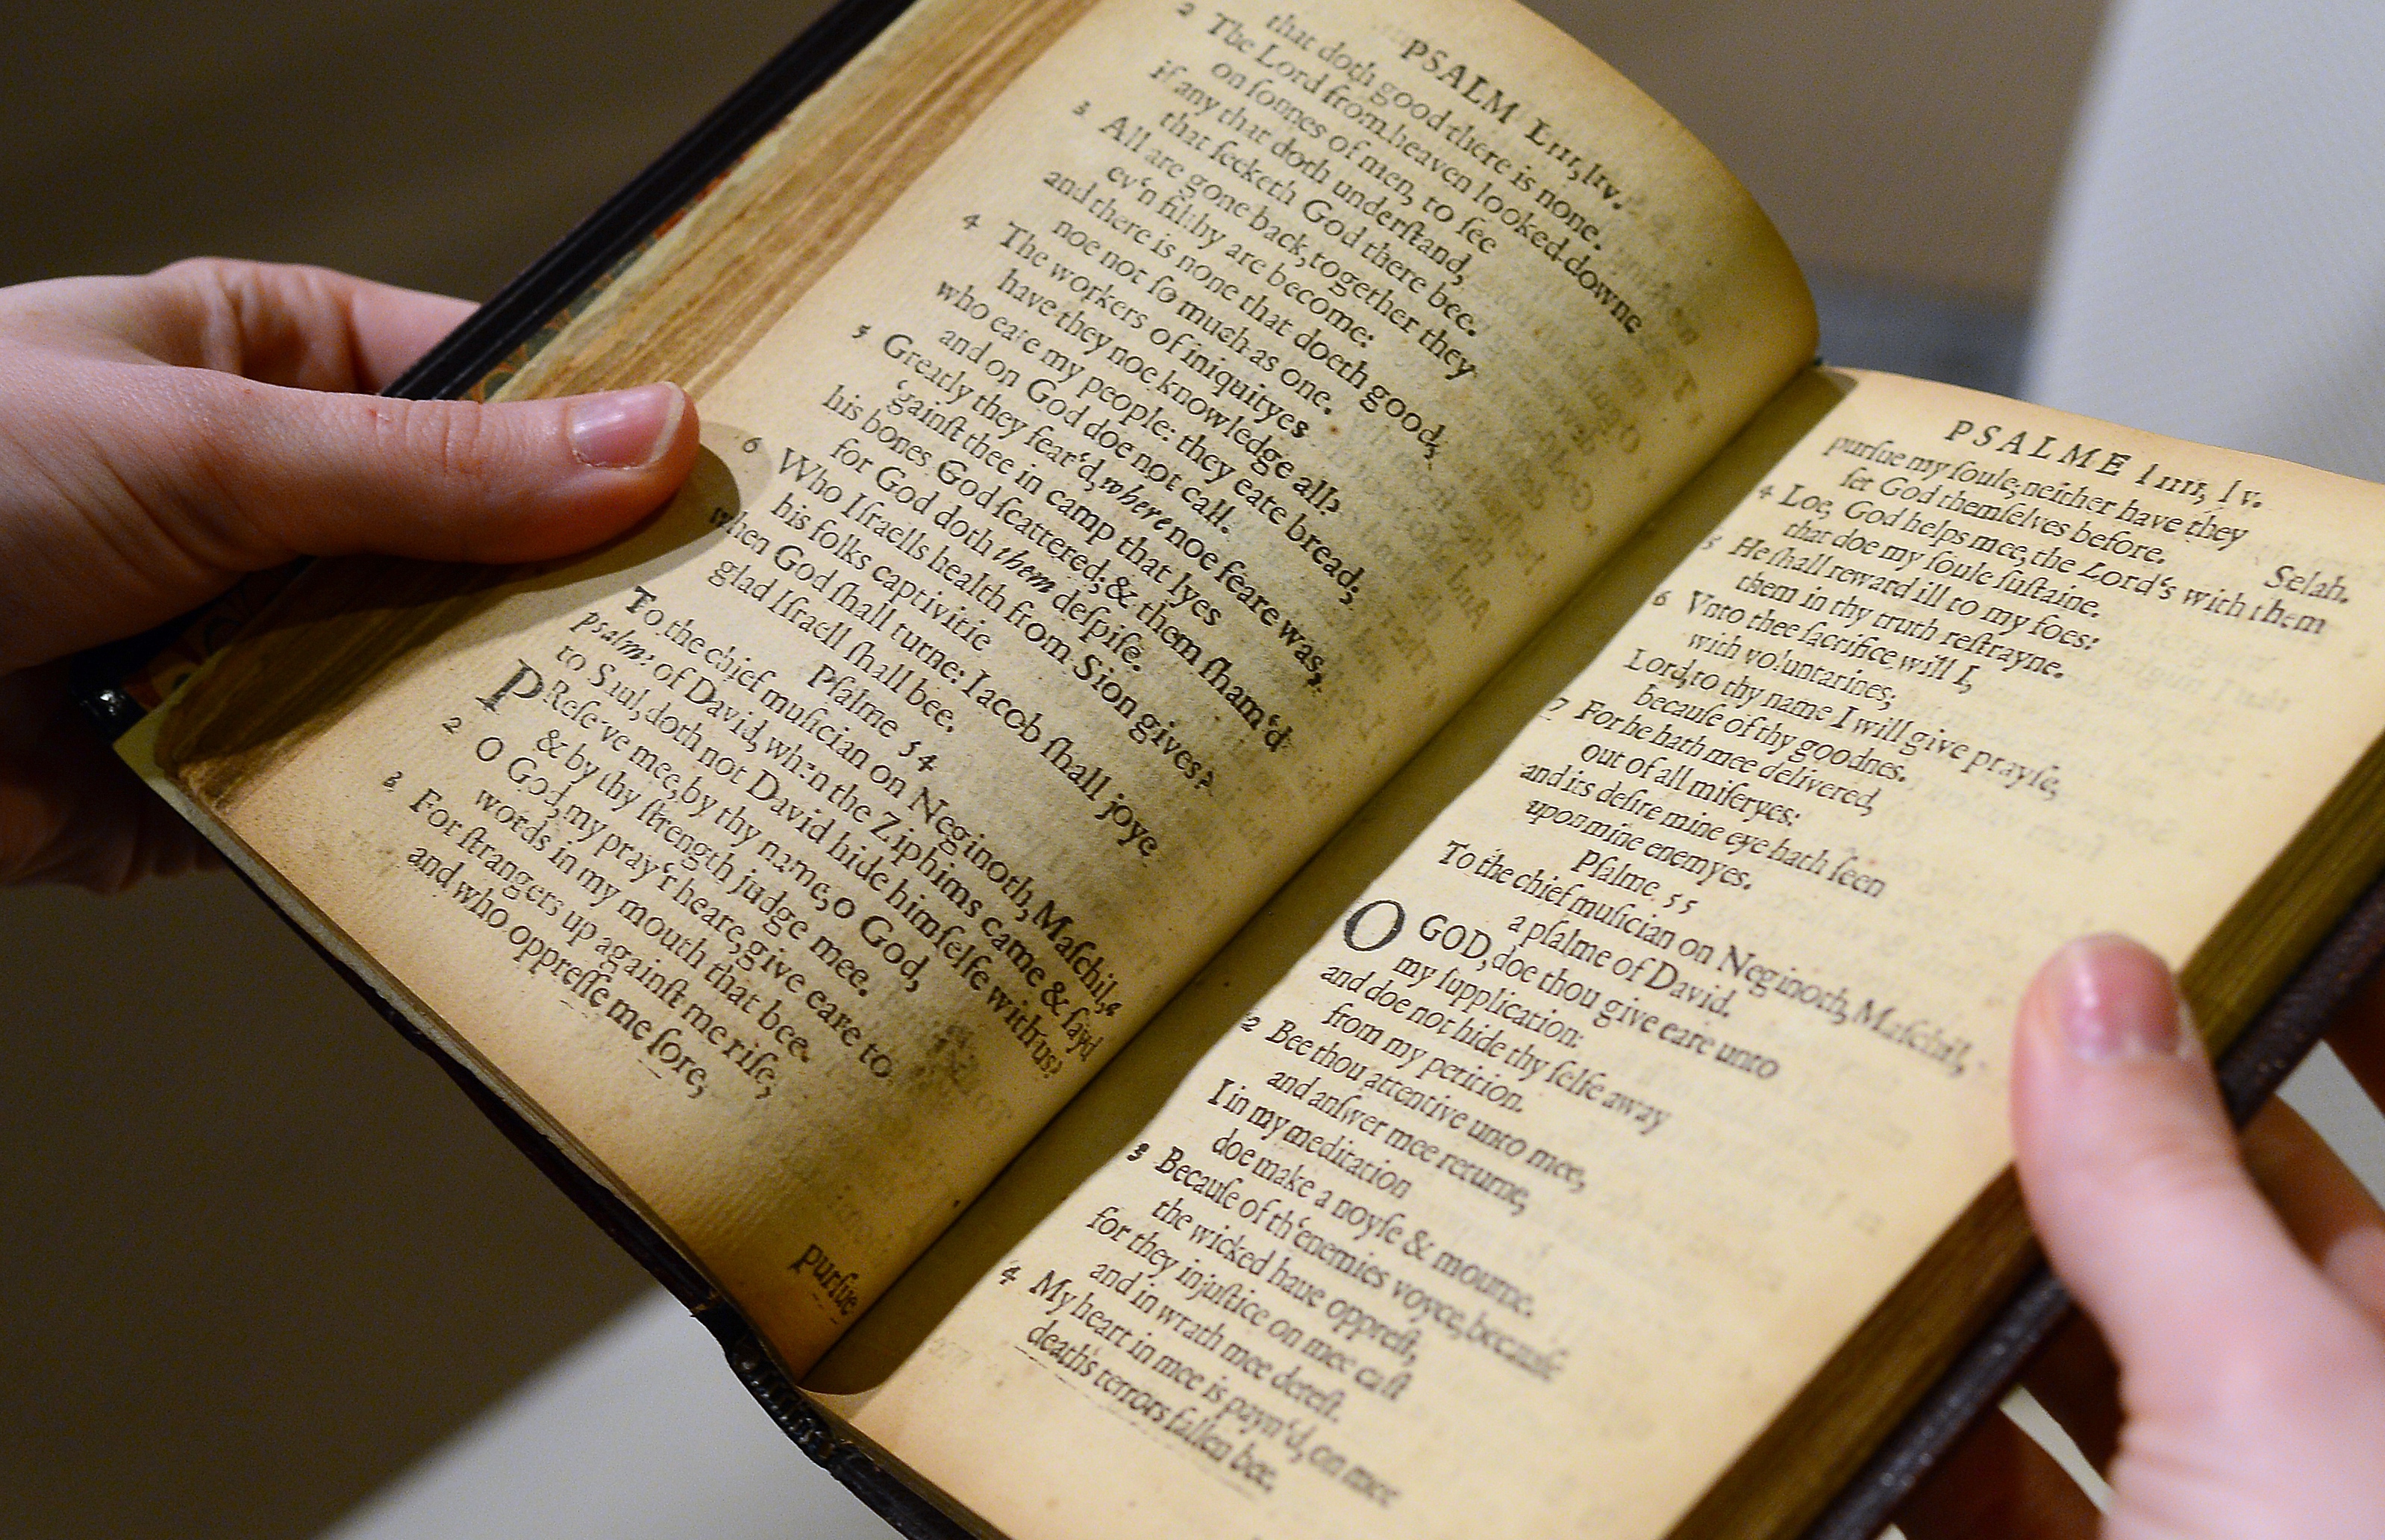 PSALM Liii, liv.
that doth good there is none.
2 The Lord from heaven looked downe
on ſonnes of men, to ſee
if any that doth underſtand,
that ſeeketh God there bee.
3 All are gone back, together they
ev'n filthy are become:
and there is none that doeth good,
noe not ſo much as one.
4 The workers of iniquityes
have they noe knowledge all?
who eate my people: they eate bread,
and on God doe not call.
5 Greatly they fear'd, where noe feare was,
'gainſt thee in camp that lyes
his bones God ſcattered; & them ſham'd
for God doth them deſpiſe.
6 Who Iſraells health from Sion gives?
his folks captivitie
when God ſhall turne: Iacob ſhall joye
glad Iſraell ſhall bee.
Pſalme 54
To the chief muſician on Neginoth, Maſchil, a
pſalme of David, when the Ziphims came & ſayd
to Saul, doth not David hide himſelfe with us?
PReſerve mee, by thy name, o God,
& by thy ſtrength judge mee.
2 O God, my pray'r heare, give eare to
words in my mouth that bee.
3 For ſtrangers up againſt me riſe,
and who oppreſſe me ſore,
purſue
PSALME liiii, lv.
purſue my ſoule; neither have they
ſet God themſelves before. Selah.
4 Loe, God helps mee, the Lord's with them
that doe my ſoule ſuſtaine.
5 He ſhall reward ill to my foes:
them in thy truth reſtrayne.
6 Vnto thee ſacrifice will I,
with voluntarines;
Lord, to thy name I will give prayſe,
becauſe of thy goodnes.
7 For he hath mee delivered,
out of all miſeryes:
and its deſire mine eye hath ſeen
upon mine enemyes.
Pſalme 55
To the chief muſician on Neginoth, Maſchil,
a pſalme of David.
O GOD, doe thou give eare unto
my ſupplication:
and doe not hide thy ſelfe away
from my petition.
2 Bee thou attentive unto mee,
and anſwer mee returne,
I in my meditation
doe make a noyſe & mourne.
3 Becauſe of th'enemies voyce, becauſe
the wicked haue oppreſt,
for they injuſtice on mee caſt
and in wrath mee deteſt.
4 My heart in mee is payn'd, on mee
deaths terrors fallen bee.